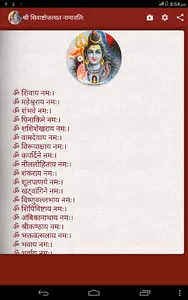 8:54
श्री शिवाष्टोत्तरशत नामावलि:
ॐ शिवाय नमः।
ॐ महेश्वराय नमः।
ॐ शंभवे नमः।
ॐ पिनाकिने नमः।
ॐ शशिशेखराय नमः।
ॐ वामदेवाय नमः।
ॐ विरूपाक्षाय नमः।
ॐ कपर्दिने नमः।
ॐ नीललोहिताय नमः।
ॐ शंकराय नमः।
ॐ शूलपाणये नमः।
ॐ खट्वांगिने नमः।
ॐ विष्णुवल्लभाय नमः।
ॐ शिपिविष्टाय नमः।
ॐ अंबिकानाथाय नमः।
ॐ श्रीकण्ठाय नमः।
ॐ भक्तवत्सलाय नमः।
ॐ भवाय नमः।